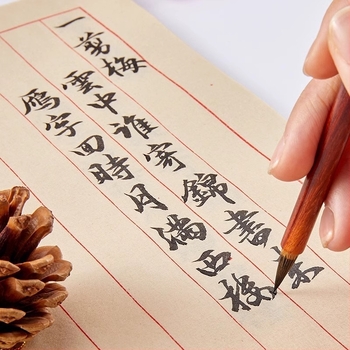 一剪梅
雲中誰寄錦書来
雁字回時月滿西樓